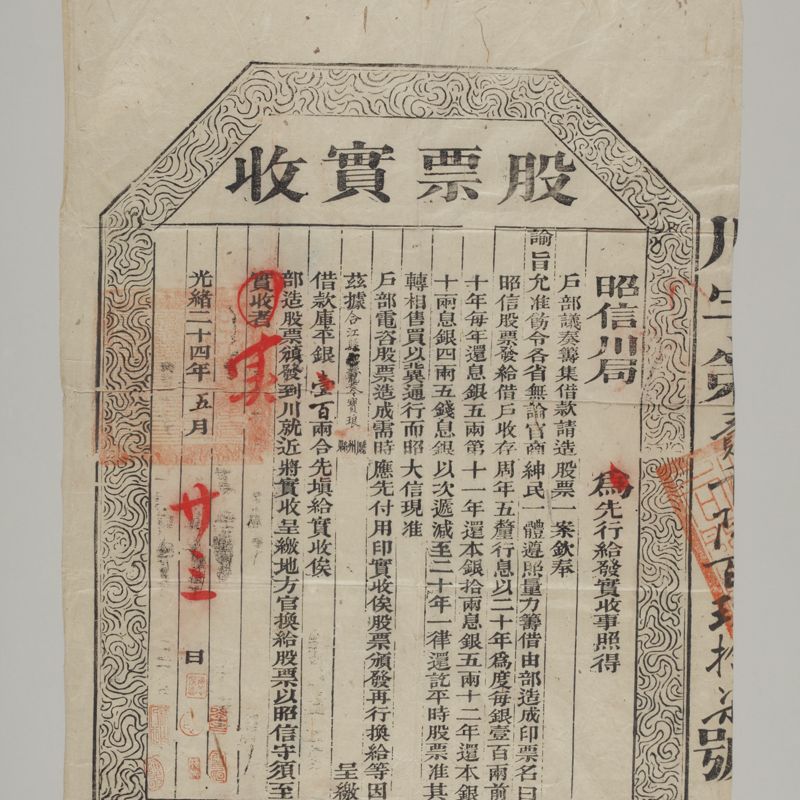 股票實收
昭信川局　為先行給發實收事照得
戶部議奏籌集借款請造股票一案欽奉
諭旨允准飭令各省無論官商紳民一體遵照量力籌借由部造成印票名曰
昭信股票發給借戶收存周年五釐行息以二十年為度每銀壹百兩前
十年每年還息銀五兩第十一年還本銀拾兩息銀五兩十二年還本銀
十兩息銀四兩五錢息銀以次遞減至二十年一律還訖平時股票准其
轉相售買以冀通行而昭大信現准
戶部電咨股票造成需時應先付用印實收俟股票頒發再行換給等因
茲據合江縣 寶琅 呈繳
借款庫平銀壹百兩合先塡給實收俟
部造股票頒發到川就近將實收呈繳地方官換給股票以昭信守須至
實收者
实
光緒二十四年五月廿三日
川字第 百 拾 號